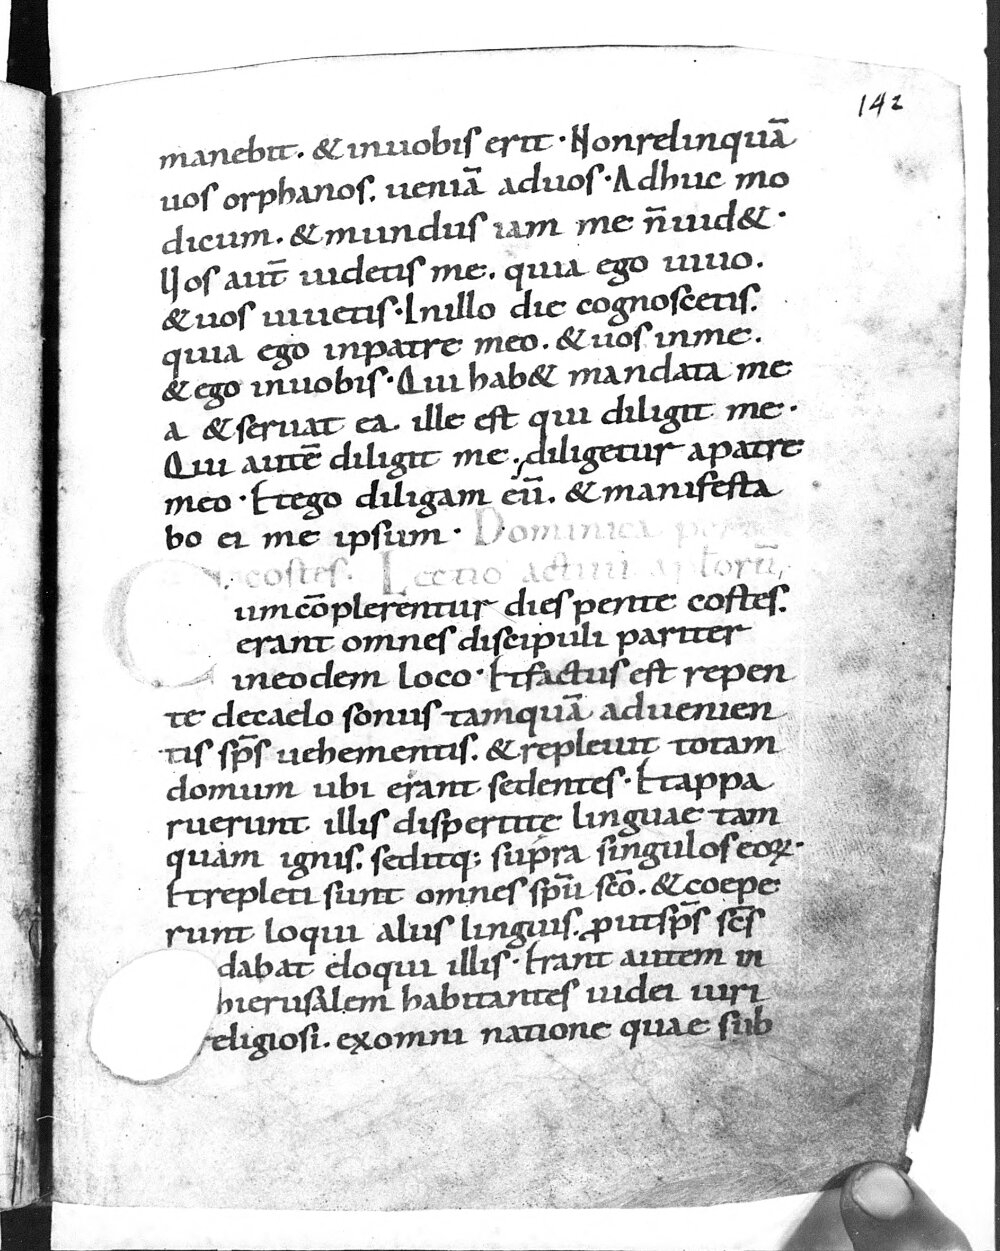 142
manebit. & inuobis erit · Nonrelinquā
uos orphanos. ueniā aduos · Adhuc mo
dicum. & mundus iam me n̄ uid& ·
Uos aut̄ uidetis me. quia ego uiuo.
& uos uiuetis · Inillo die cognoscetis.
quia ego inpatre meo. & uos inme.
& ego inuobis · Qui hab& mandata me
a & seruat ea. ille est qui diligit me ·
Qui autē diligit me. diligetur apatre
meo · Etego diligam eū. & manifesta
bo ei me ipsum · Dominica pen
costes. Lectio actuū
Cumcōplerentur dies pente costes.
erant omnes discipuli pariter
ineodem loco · Etfactus est repen
te decaelo sonus tamquā aduenien
tis sp̄s uehementis. & repleuit totam
domum ubi erant sedentes · Etappa
ruerunt illis dispertitę linguae tam
quam ignis. seditq; supra singulos eoꝝ ·
Etrepleti sunt omnes sp̄u sc̄o. & coepe
runt loqui aliis linguis. ꝓutsp̄s sc̄s
dabat eloqui illis · Erant autem in
hierusalem habitantes iudei uiri
religiosi. exomni natione quae sub